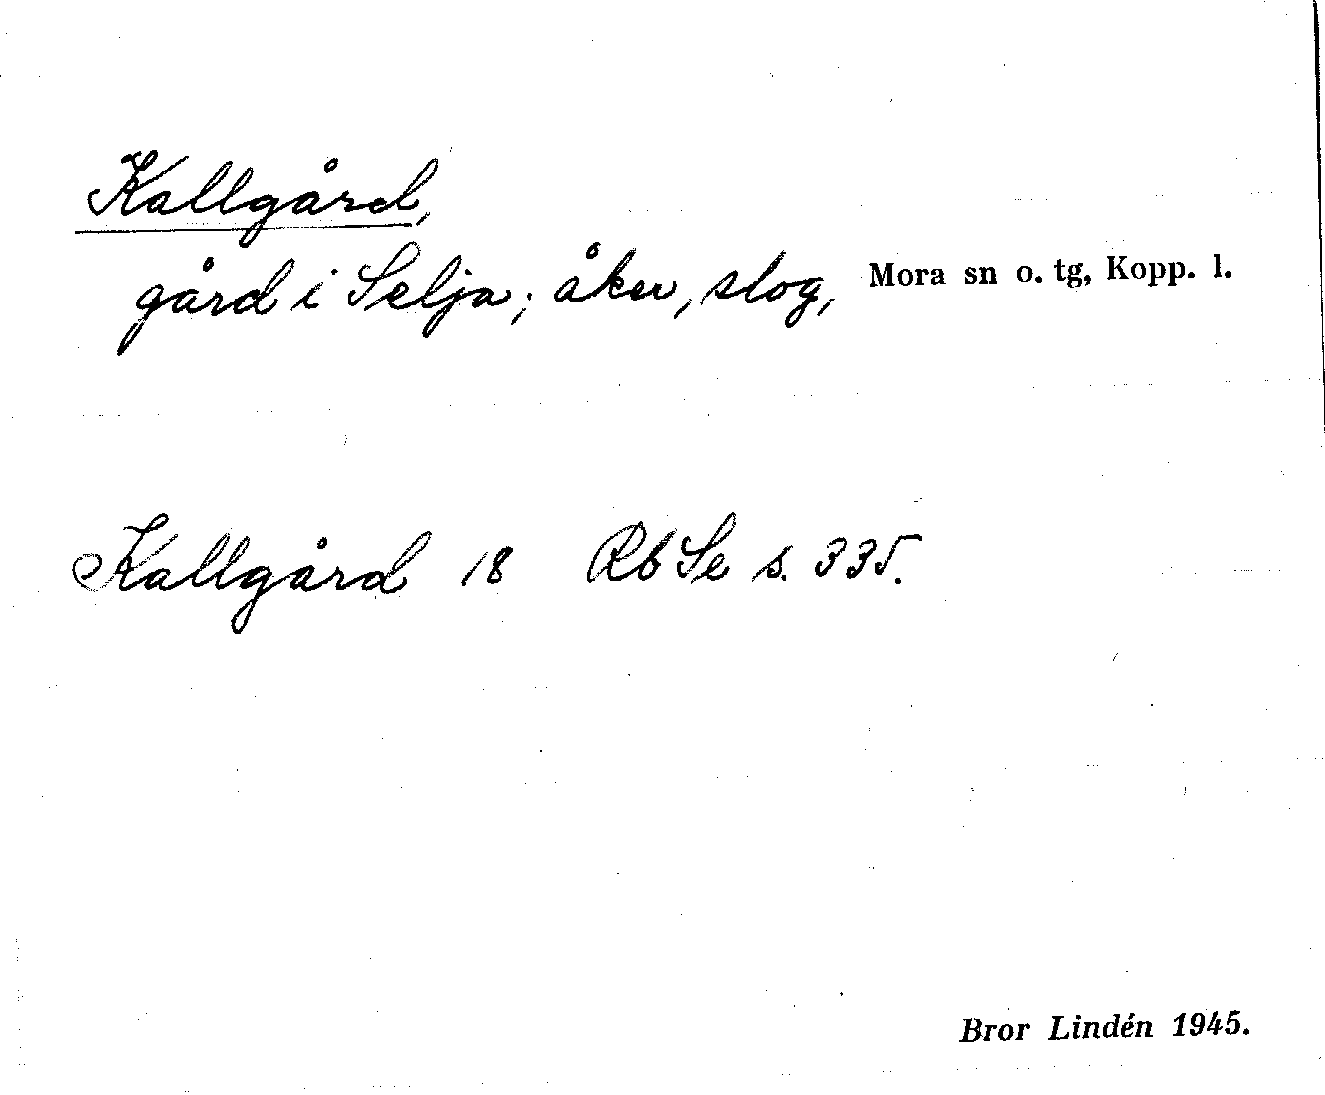 Kallgård,
gård i Selja; åker, slog, Mora sn o. tg, Kopp. l.
Kallgård 18 Rb Se s. 335.
Bror Lindén 1945.